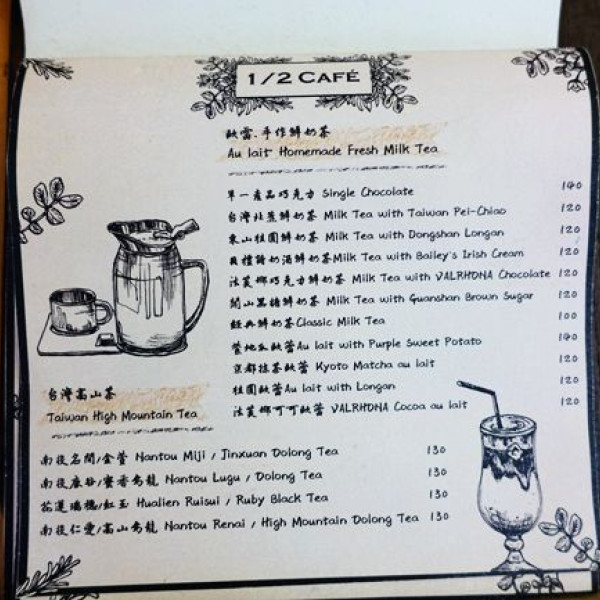 1/2 CAFÉ
歐蕾.手作鮮奶茶
Au lait Homemade Fresh Milk Tea
單一產品巧克力 Single Chocolate 140
台灣北蕉鮮奶茶 Milk Tea with Taiwan Pei-Chiao 120
東山桂圓鮮奶茶 Milk Tea with Dongshan Longan 120
貝禮詩奶酒鮮奶茶Milk Tea with Bailey's Irish Cream 120
法芙娜巧克力鮮奶茶 Milk Tea with VALRHONA Chocolate 120
關山黑糖鮮奶茶 Milk Tea with Guanshan Brown Sugar 120
經典鮮奶茶Classic Milk Tea 100
紫地瓜歐蕾Au lait with Purple Sweet Potato 140
京都抹茶歐蕾 Kyoto Matcha au lait 120
桂圓歐蕾Au lait with Longan 120
法芙娜可可歐蕾 VALRHONA Cocoa au lait 120
台灣高山茶
Taiwan High Mountain Tea
南投名間/金萱 Nantou Miji / Jinxuan Dolong Tea 130
南投鹿谷/蜜香烏龍 Nantou Lugu / Dolong Tea 130
花蓮瑞穗/紅玉 Hualien Ruisui / Ruby Black Tea 130
南投仁愛/高山烏龍 Nantou Renai / High Mountain Dolong Tea 130